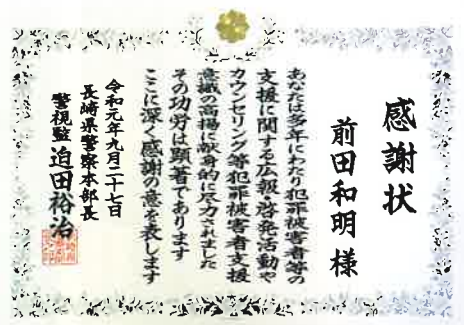 感謝状
前田和明 様
あなたは多年にわたり犯罪被害者等の
支援に関する広報・啓発活動や
カウンセリング等犯罪被害者支援
意識の高揚に献身的に尽力されました
その功労は顕著であります
ここに深く感謝の意を表します
令和元年九月二十七日
長崎県警察本部長
警視監 迫田裕治